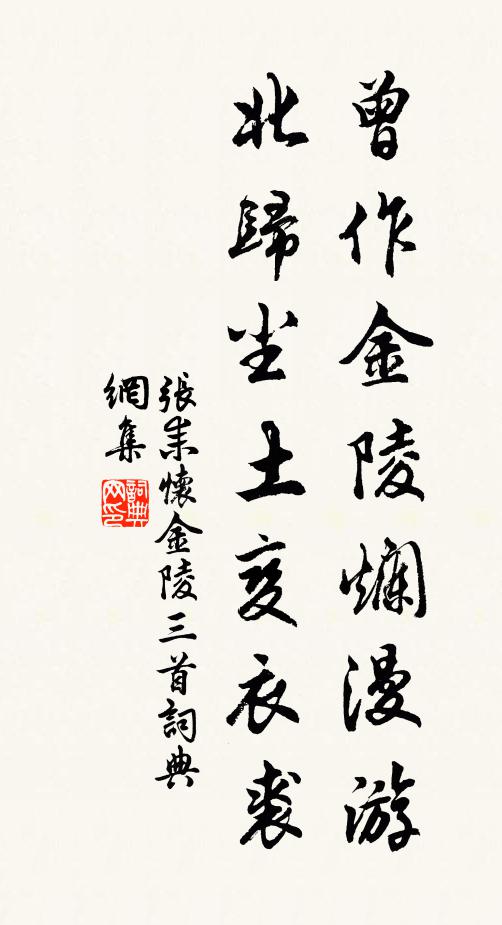 曾作金陵爛漫游
北歸尘土变衣裘
張耒懷金陵三首詞典
網集
詞典
网印